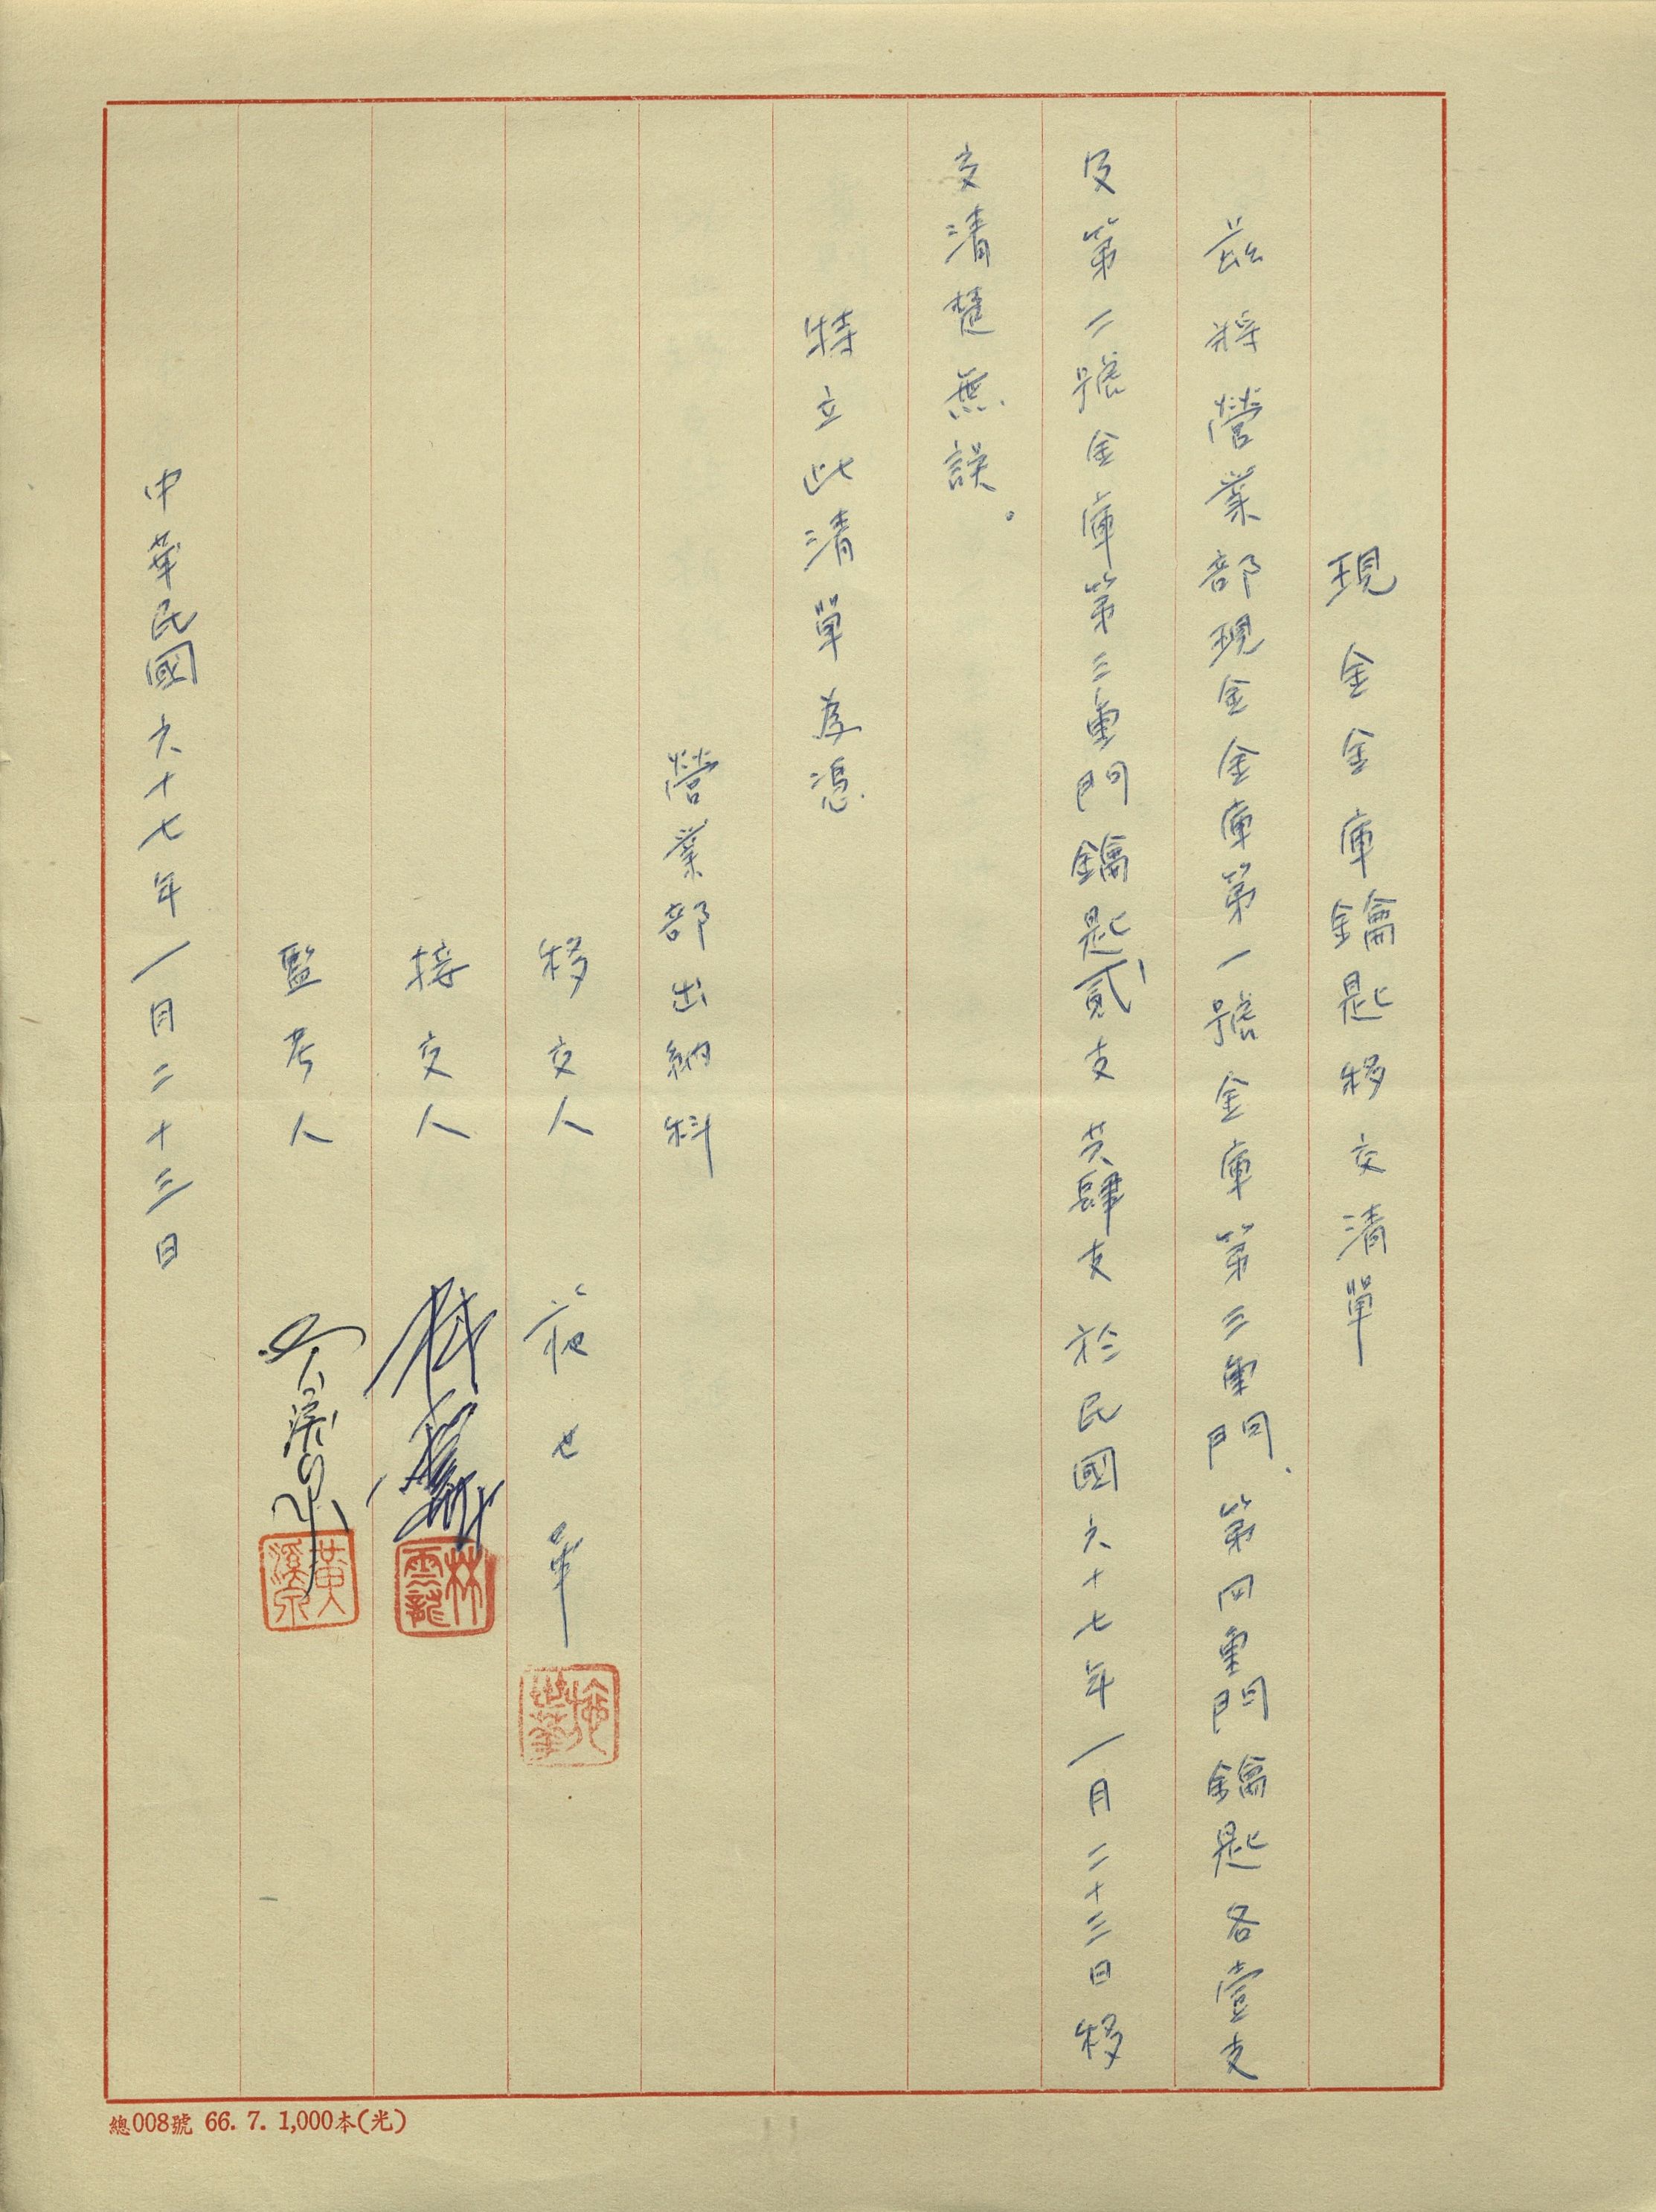 現金金庫鑰匙移交清單
茲將營業部現金金庫第一號金庫第三重門、第四重門鑰匙各壹支
及第二號金庫第三重門鑰匙貳支共肆支於民國六十七年一月二十三日移
交清楚無誤。
特立此清單為憑
營業部出納科
移交人 施世華 施世華
接交人 林雲龍 林雲龍
監考人 黃溪泉 黃溪泉
中華民國六十七年一月二十三日
總008號 66. 7. 1,000本(光)